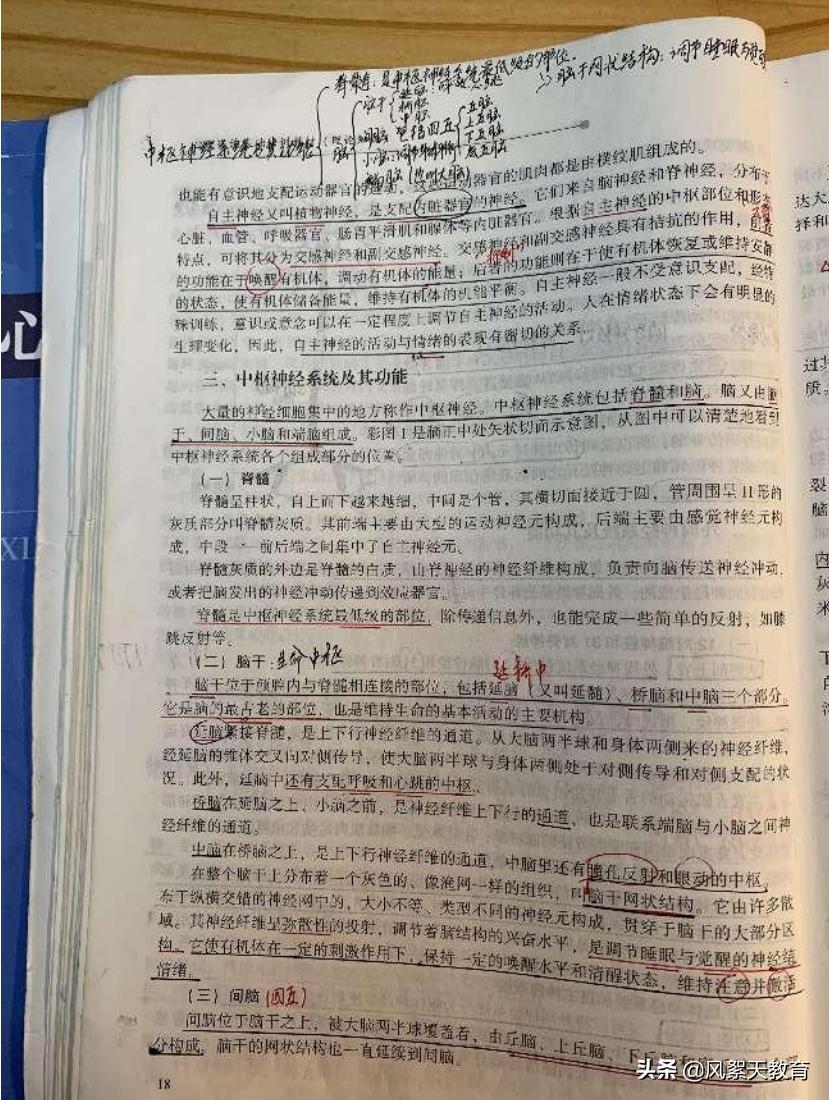 脊髓：是中枢神经系统最低级的部位.
脑干网状结构：调节睡眠与觉醒
脑干
延脑：呼吸心跳
桥脑
中脑
中枢神经系统及其功能
脑
间脑 包括四丘
丘脑
上丘脑
下丘脑
底丘脑
小脑：
端脑（也叫大脑）
也能有意识地支配运动器官的运动，运动器官的肌肉都是由横纹肌组成的。
自主神经又叫植物神经，是支配内脏器官的神经。它们来自脑神经和脊神经，分布于
心脏，血管、呼吸器官、肠胃平滑肌和腺体等内脏器官。根据自主神经的中枢部位和形态
特点，可将其分为交感神经和副交感神经。交感神经和副交感神经具有拮抗的作用，前者
抑制
的功能在于唤醒有机体，调动有机体的能量；后者的功能则在于使有机体恢复或维持安静
的状态，使有机体储备能量，维持有机体的机能平衡。自主神经一般不受意识支配，经特
殊训练，意识或意念可以在一定程度上调节自主神经的活动。人在情绪状态下会有明显的
生理变化，因此，自主神经的活动与情绪的表现有密切的关系。
三、中枢神经系统及其功能
大量的神经细胞集中的地方称作中枢神经。中枢神经系统包括脊髓和脑。脑又由脑
干、间脑、小脑和端脑组成。彩图1是脑正中处矢状切面示意图，从图中可以清楚地看到
中枢神经系统各个组成部分的位置。
（一）脊髓
脊髓呈柱状，自上而下越来越细，中间是个管，其横切面接近于圆，管周围呈H形的
灰质部分叫脊髓灰质。其前端主要由大型的运动神经元构成，后端主要由感觉神经元构
成，中段——前后端之间集中了自主神经元。
脊髓灰质的外边是脊髓的白质，由脊神经的神经纤维构成，负责向脑传送神经冲动，
或者把脑发出的神经冲动传递到效应器官。
脊髓是中枢神经系统最低级的部位，除传递信息外，也能完成一些简单的反射，如膝
跳反射等。
（二）脑干：生命中枢
延桥中
脑干位于颅腔内与脊髓相连接的部位，包括延脑（又叫延髓）、桥脑和中脑三个部分。
它是脑的最古老的部位，也是维持生命的基本活动的主要机构。
延脑紧接脊髓，是上下行神经纤维的通道。从大脑两半球和身体两侧来的神经纤维，
经延脑的锥体交叉向对侧传导，使大脑两半球与身体两侧处于对侧传导和对侧支配的状
况。此外，延脑中还有支配呼吸和心跳的中枢。
桥脑在延脑之上、小脑之前，是神经纤维上下行的通道，也是联系端脑与小脑之间神
经纤维的通道。
中脑在桥脑之上，是上下行神经纤维的通道，中脑里还有瞳孔反射和眼动的中枢。
在整个脑干上分布着一个灰色的、像渔网一样的组织，叫脑干网状结构。它由许多散
布于纵横交错的神经网中的，大小不等、类型不同的神经元构成，贯穿于脑干的大部分区
域。其神经纤维呈弥散性的投射，调节着脑结构的兴奋水平，是调节睡眠与觉醒的神经结
构。它使有机体在一定的刺激作用下，保持一定的唤醒水平和清醒状态，维持注意并激活
情绪。
（三）间脑（四丘）
间脑位于脑干之上，被大脑两半球覆盖着，由丘脑、上丘脑、下丘脑
分构成，脑干的网状结构也一直延续到间脑。
18
头条 @风絮天教育
心
XI
达大
择和
过
质
裂
脑
内
灰
来